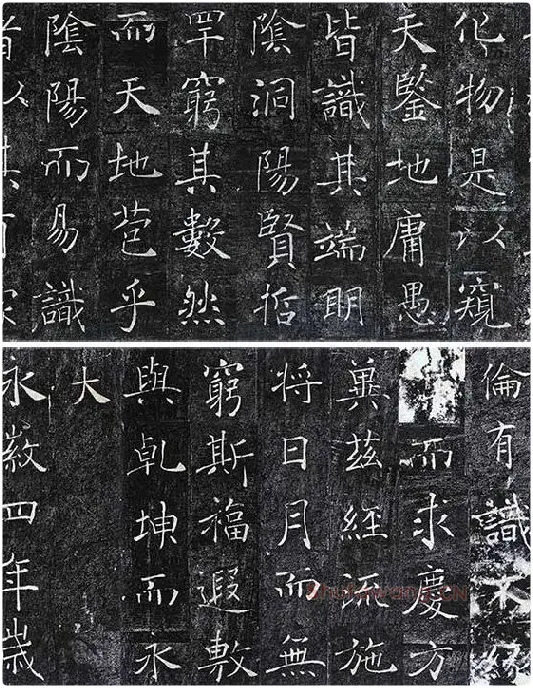 化物是以窺
天鑒地庸愚
皆識其端明
陰洞陽賢哲
罕窮其數然
而天地苞乎
陰陽而易識
者以其有
倫有識
而求慶方
冀茲經流施
将日月而無
窮斯福遐敷
與乹坤而永
大
永徽四年歲